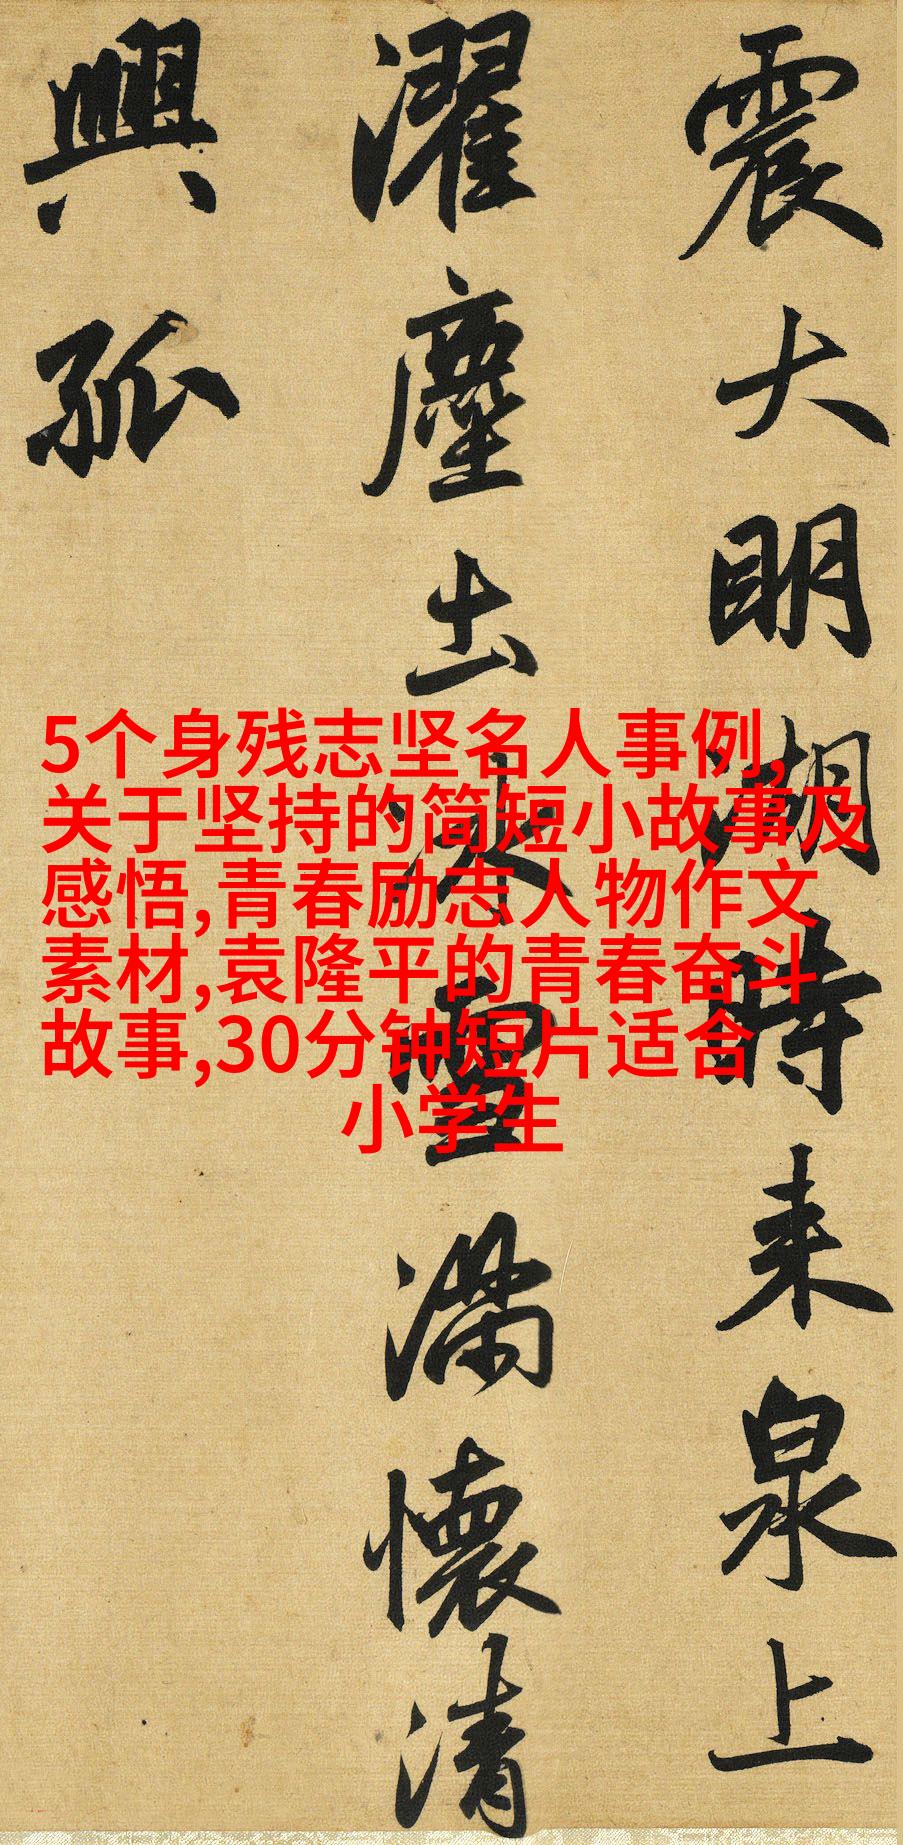 震大明湖時来泉上
濯塵土冰雪满懷清
興孤
5个身残志坚名人事例,
关于坚持的简短小故事及
感悟,青春励志人物作文
素材,袁隆平的青春奋斗
故事,30分钟短片适合
小学生